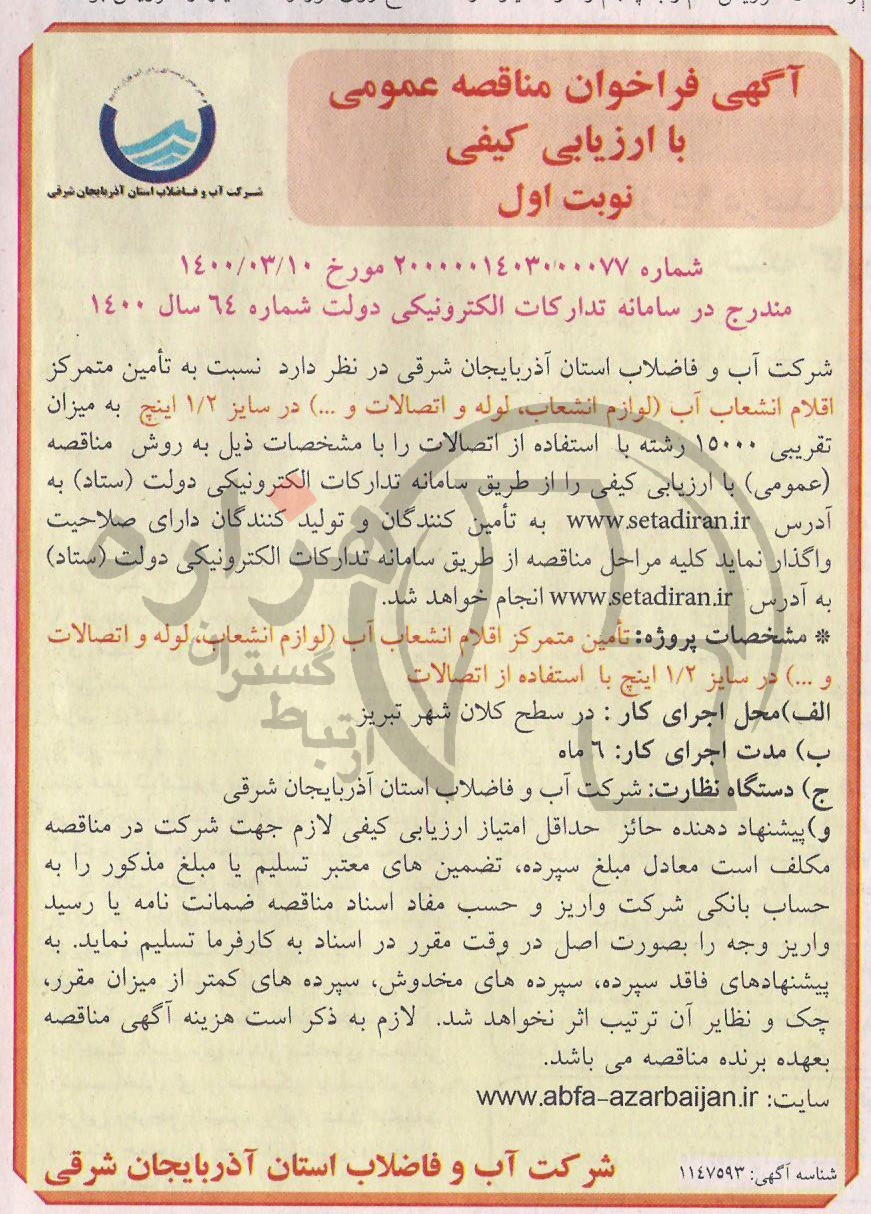 آگهی فراخوان مناقصه عمومی
با ارزیابی کیفی
نوبت اول
شرکت آب و فاضلاب استان آذربایجان شرقی
شماره ۲۰۰۰۰۰۱۴۰۳۰۰۰۰۷۷ مورخ ۱۴۰۰/۰۳/۱۰
مندرج در سامانه تدارکات الکترونیکی دولت شماره ٦٤ سال ۱۴۰۰
شرکت آب و فاضلاب استان آذربایجان شرقی در نظر دارد نسبت به تأمین متمرکز
اقلام انشعاب آب (لوازم انشعاب، لوله و اتصالات و ...) در سایز ۱/۲ اینچ به میزان
تقریبی ۱۵۰۰۰ رشته با استفاده از اتصالات را با مشخصات ذیل به روش مناقصه
(عمومی) با ارزیابی کیفی را از طریق سامانه تدارکات الکترونیکی دولت (ستاد) به
آدرس www.setadiran.ir به تأمین کنندگان و تولید کنندگان دارای صلاحیت
واگذار نماید کلیه مراحل مناقصه از طریق سامانه تدارکات الکترونیکی دولت (ستاد)
به آدرس www.setadiran.ir انجام خواهد شد.
* مشخصات پروژه: تأمین متمرکز اقلام انشعاب آب (لوازم انشعاب، لوله و اتصالات
و ...) در سایز ۱/۲ اینچ با استفاده از اتصالات
الف)محل اجرای کار : در سطح کلان شهر تبریز
ب) مدت اجرای کار: ٦ ماه
ج) دستگاه نظارت: شرکت آب و فاضلاب استان آذربایجان شرقی
و)پیشنهاد دهنده حائز حداقل امتیاز ارزیابی کیفی لازم جهت شرکت در مناقصه
مکلف است معادل مبلغ سپرده، تضمین های معتبر تسلیم یا مبلغ مذکور را به
حساب بانکی شرکت واریز و حسب مفاد اسناد مناقصه ضمانت نامه یا رسید
واریز وجه را بصورت اصل در وقت مقرر در اسناد به کارفرما تسلیم نماید. به
پیشنهادهای فاقد سپرده، سپرده های مخدوش، سپرده های کمتر از میزان مقرر،
چک و نظایر آن ترتیب اثر نخواهد شد. لازم به ذکر است هزینه آگهی مناقصه
بعهده برنده مناقصه می باشد.
سایت: www.abfa-azarbaijan.ir
شناسه آگهی: ۱۱٤۷۵۹۳
شرکت آب و فاضلاب استان آذربایجان شرقی
هزاره
گستران
ارتباط